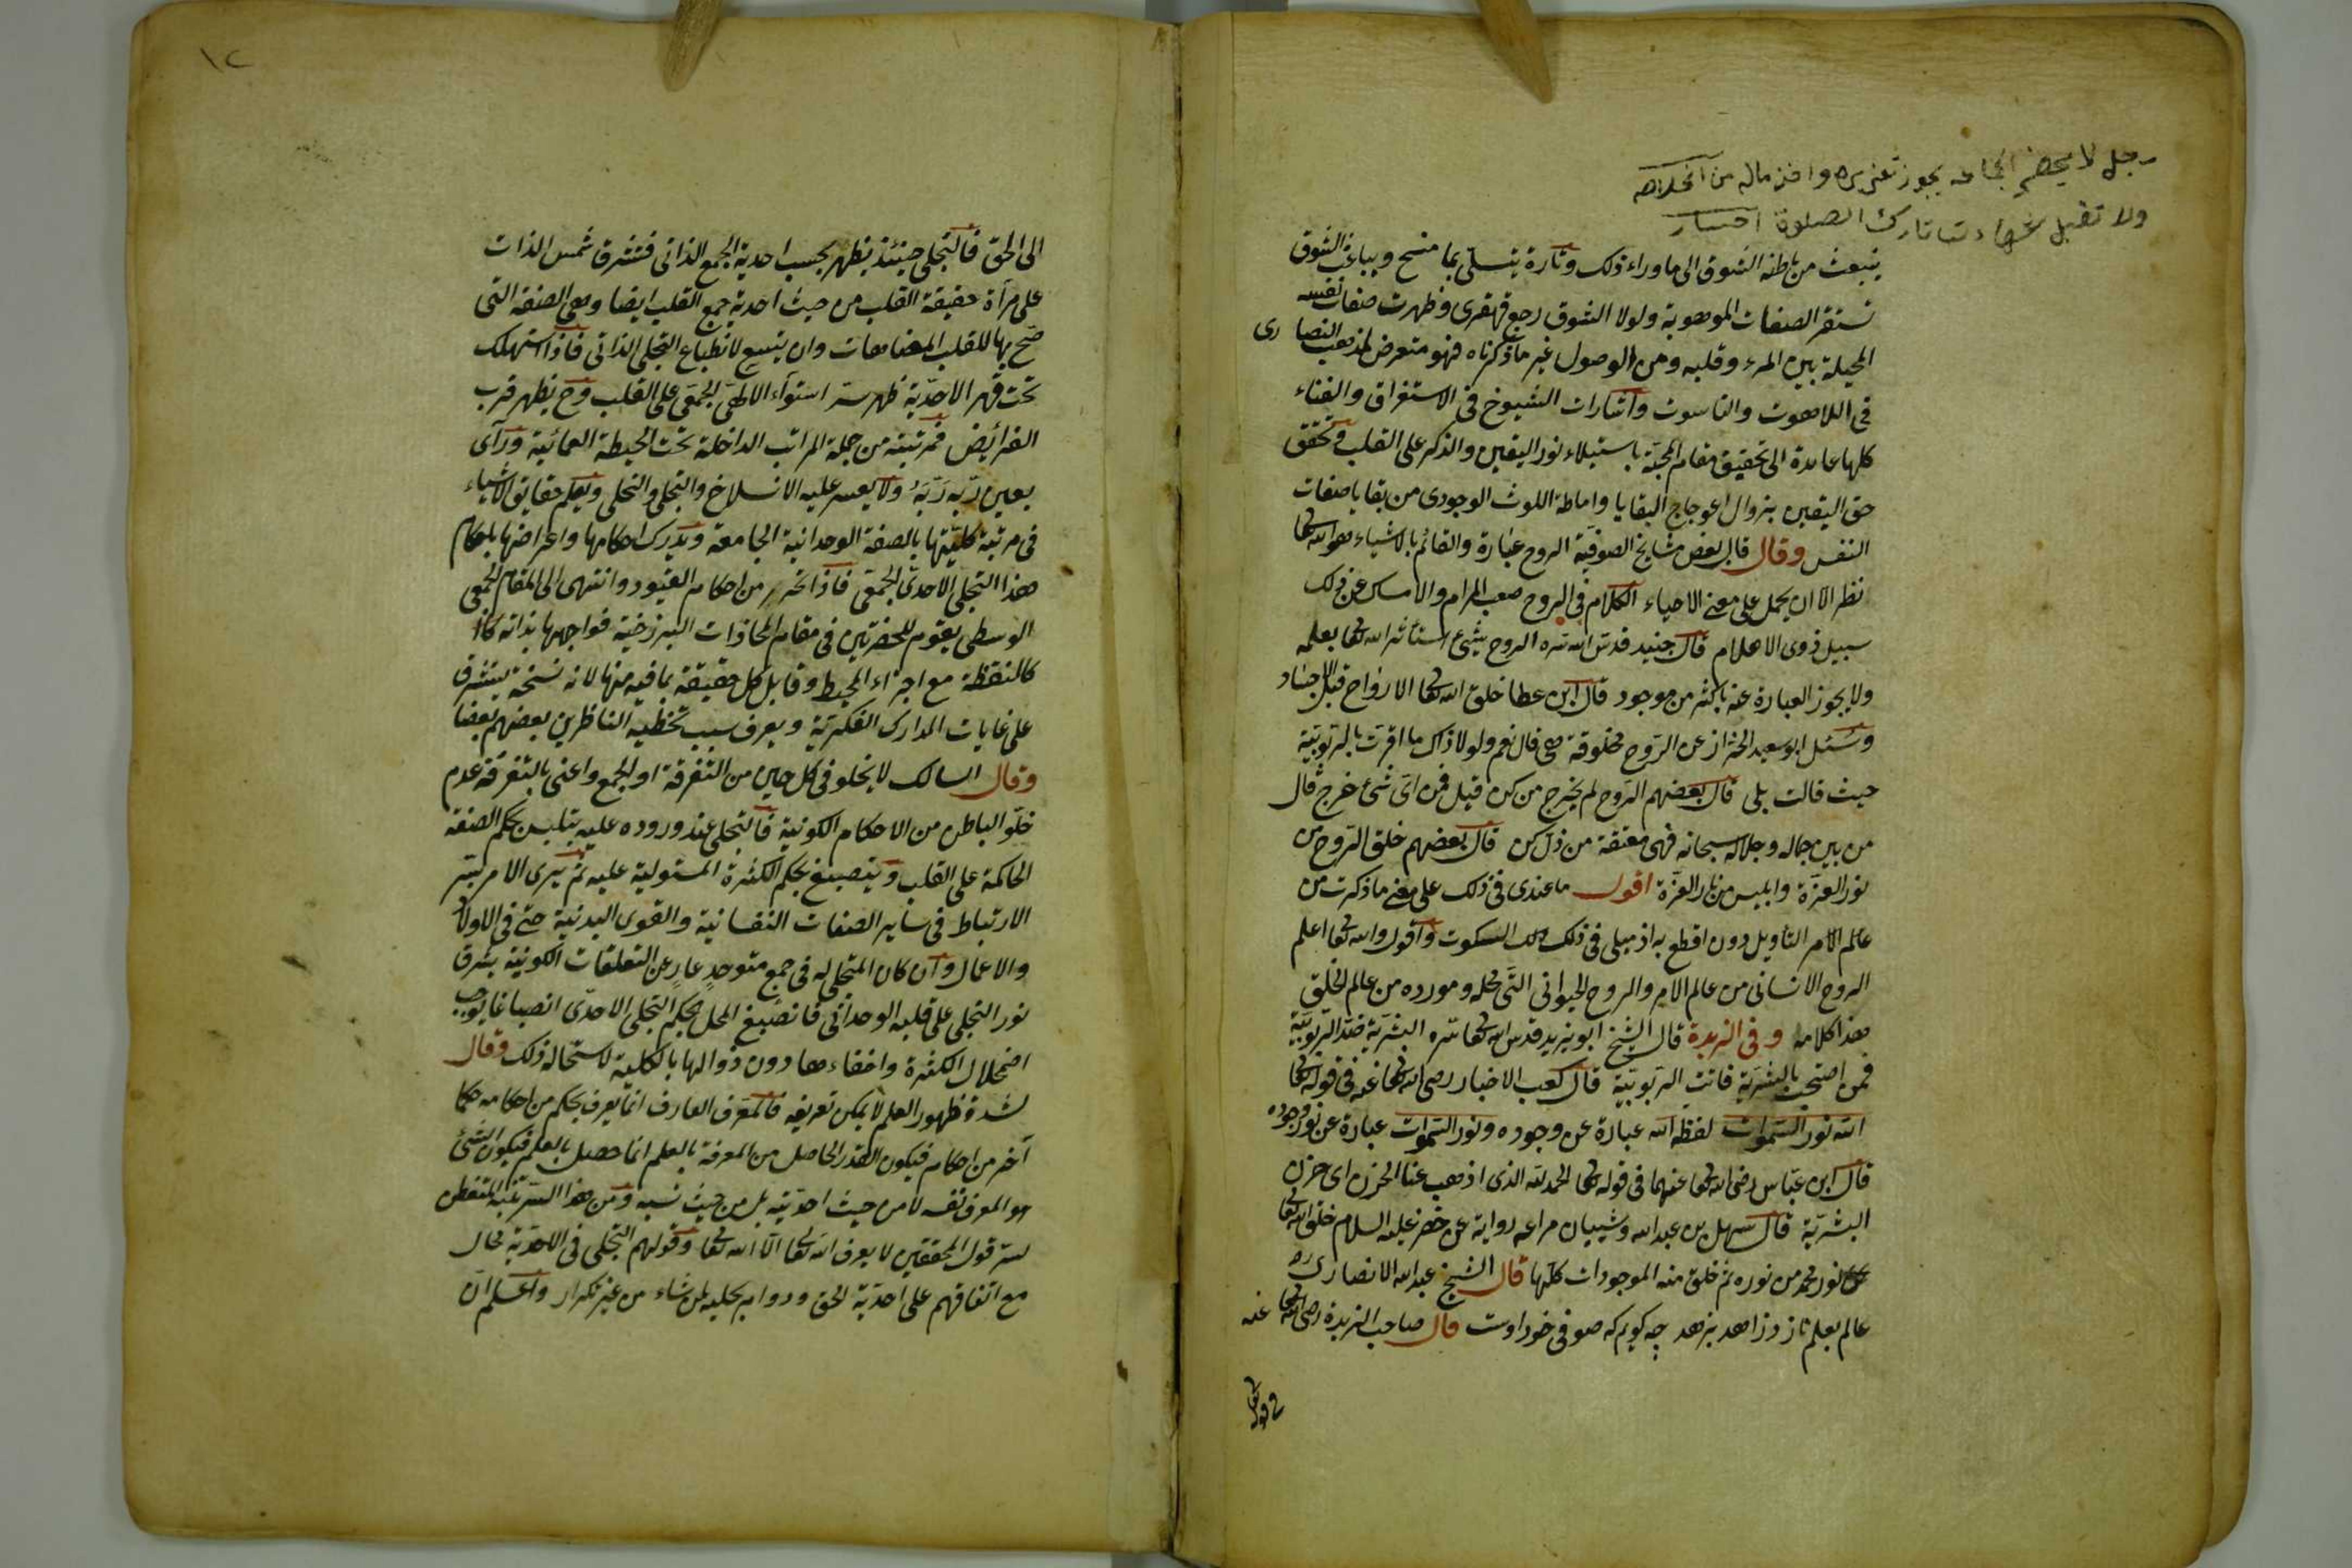 رجل لا يحضر الجماعه يجوز تعزيره واخذ ماله من الخلاصه
ولا تقبل شهادت تارك الصلوة اختيار
ينبعث من باطنه الشوق الى ما وراء ذلك وتارة يتسلى بما منح وبباعث الشوق
تستقر الصفات الموهوبة ولولا الشوق رجع قهقرى وظهرت صفات نفسه
الحيلة بين المرء وقلبه ومن الوصول غير ما ذكرناه فهو متعرض لمذهب النصارى
فى اللاهوت والناسوت واشارات الشيوخ فى الاستغراق والفناء
كلها عايدة الى تحقيق مقام المحبة باستيلاء نور اليقين والذكر على القلب وتحقق
حق اليقين بزوال اعوجاج البقايا واماطة اللوث الوجودى من بقايا صفات
النفس وقال قال بعض مشايخ الصوفية الروح عبارة والقائم بالاشياء هو الله تعا
نظر الا ان يحمل على معنى الاحياء الكلام فى الروح صعب المرام والامساك عن ذلك
سبيل ذوى الاحلام قال جنيد قدس الله سره الروح شئ استأثر الله تعا بعلمه
ولا يجوز العبارة عنه باكثر من موجود قال ابن عطا خلق الله تعا الارواح قبل الاجساد
وسئل ابو سعيد الخراز عن الروح مخلوقة هى قال نعم ولولا ذاك ما اقرت بالربوبية
حيث قالت بلى قال بعضهم الروح لم يخرج من كن قيل فمن اى شئ خرج قال
من بين جماله وجلاله سبحانه فهى معتقة من ذل كن قال بعضهم خلق الروح من
نور العزة وابليس من نار العزة اقول ما عندى فى ذلك على معنى ما ذكرت من
عالم الامر التأويل دون اقطع به اذ ميلى فى ذلك الى السكوت واقول والله تعا اعلم
الروح الانسانى من عالم الامر والروح الحيوانى التى محله ومورده من عالم الخلق
هذا كلامه وفى الزبدة قال الشيخ ابو يزيد قدس الله تعا سره البشرية ضد الربوبية
فمن احتجب بالبشرية فاتت الربوبية قال كعب الاخبار رضى الله تعا عنه فى قوله تعا
الله نور السموات لفظه الله عبارة عن وجوده ونور السموات عبارة عن نور وجوده
قال ابن عباس رضى الله تعا عنهما فى قوله تعا الحمد لله الذى اذهب عنا الحزن اى حزن
البشرية قال سهل بن عبد الله وشيبان مراعى رواية عن خضر عليه السلام خلق الله تعا
نور محمد من نوره ثم خلق منه الموجودات كلها قال الشيخ عبد الله الانصارى ره
عالم بعلم نازد زاهد بزهد چه كويم كه صوفى خود اوست قال صاحب الزبدة رضى الله تعا عنه
فى قوله تعا
١٢
الى الحق فالتجلى حينئذ يظهر بحسب احدية الجمع الذاتى فتشرق شمس الذات
على مرآة حقيقة القلب من حيث احدية جمع القلب ايضا وهى الصفة التى
صح بها للقلب المضاهات وان يتسع لانطباع التجلى الذاتى فاذا استهلك
تحت قهر الاحدية ظهر سر استوآء الالهى الجمعى على القلب وح يظهر قرب
الفرائض فمرتبته من جملة المراتب الداخلة تحت الحيطة العمائية ورآى
بعين ربه ربه ولا يعسر عليه الانسلاخ والتجلى والتحلى ويعلم حقايق الاشياء
فى مرتبة كليتها بالصفة الوحدانية الجامعة ويدرك احكامها واعراضها باحكام
هذا التجلى الاحدى الجمعى فاذا تحرر من احكام القيود وانتهى الى المقام الجمعى
الوسطى يقوم للحضرتين فى مقام المحاذات البرزخية فواجهها بذاته
كالنقطة مع اجزاء المحيط وقابل كل حقيقة بما فيه منها لانه نسخة يستشرف
على غايات المدارك الفكرية ويعرف سبب تخطئه الناظرين بعضهم بعضا
وقال السالك لا يخلو فى كل حين من التفرقة او الجمع واعنى بالتفرقة عدم
خلو الباطن من الاحكام الكونية فالتجلى عند وروده عليه يتلبس بحكم الصفة
الحاكمة على القلب وينصبغ بحكم الكثرة المستولية عليه ثم يسرى الامر بسر
الارتباط فى ساير الصفات النفسانية والقوى البدنية حتى فى الاولاد
والاعمال وان كان المتجلى له فى جمع متوحد عار عن التعلقات الكونية يشرق
نور التجلى على قلبه الوحدانى فانصبغ المحل بحكم التجلى الاحدى انصباغا يوجب
اضمحلال الكثرة واخفاءها دون زوالها بالكلية لاستحالة ذلك وقال
لشدة ظهور العلم لا يمكن تعريفه فالمعرف العارف انما يعرف بحكم من احكامه حكما
آخر من احكامه فيكون القدر الحاصل من المعرفة بالعلم انما حصل بالعلم فيكون الشئ
هو المعرف نفسه لا من حيث احديته بل من حيث نسبه ومن هذا السر يتنبه المتفطن
لسر قول المحققين لا يعرف الله تعا الا الله تعا وقولهم التجلى فى الاحدية محال
مع اتفاقهم على احدية الحق ودوام تجليه لمن شاء من غير تكرار واعلم ان